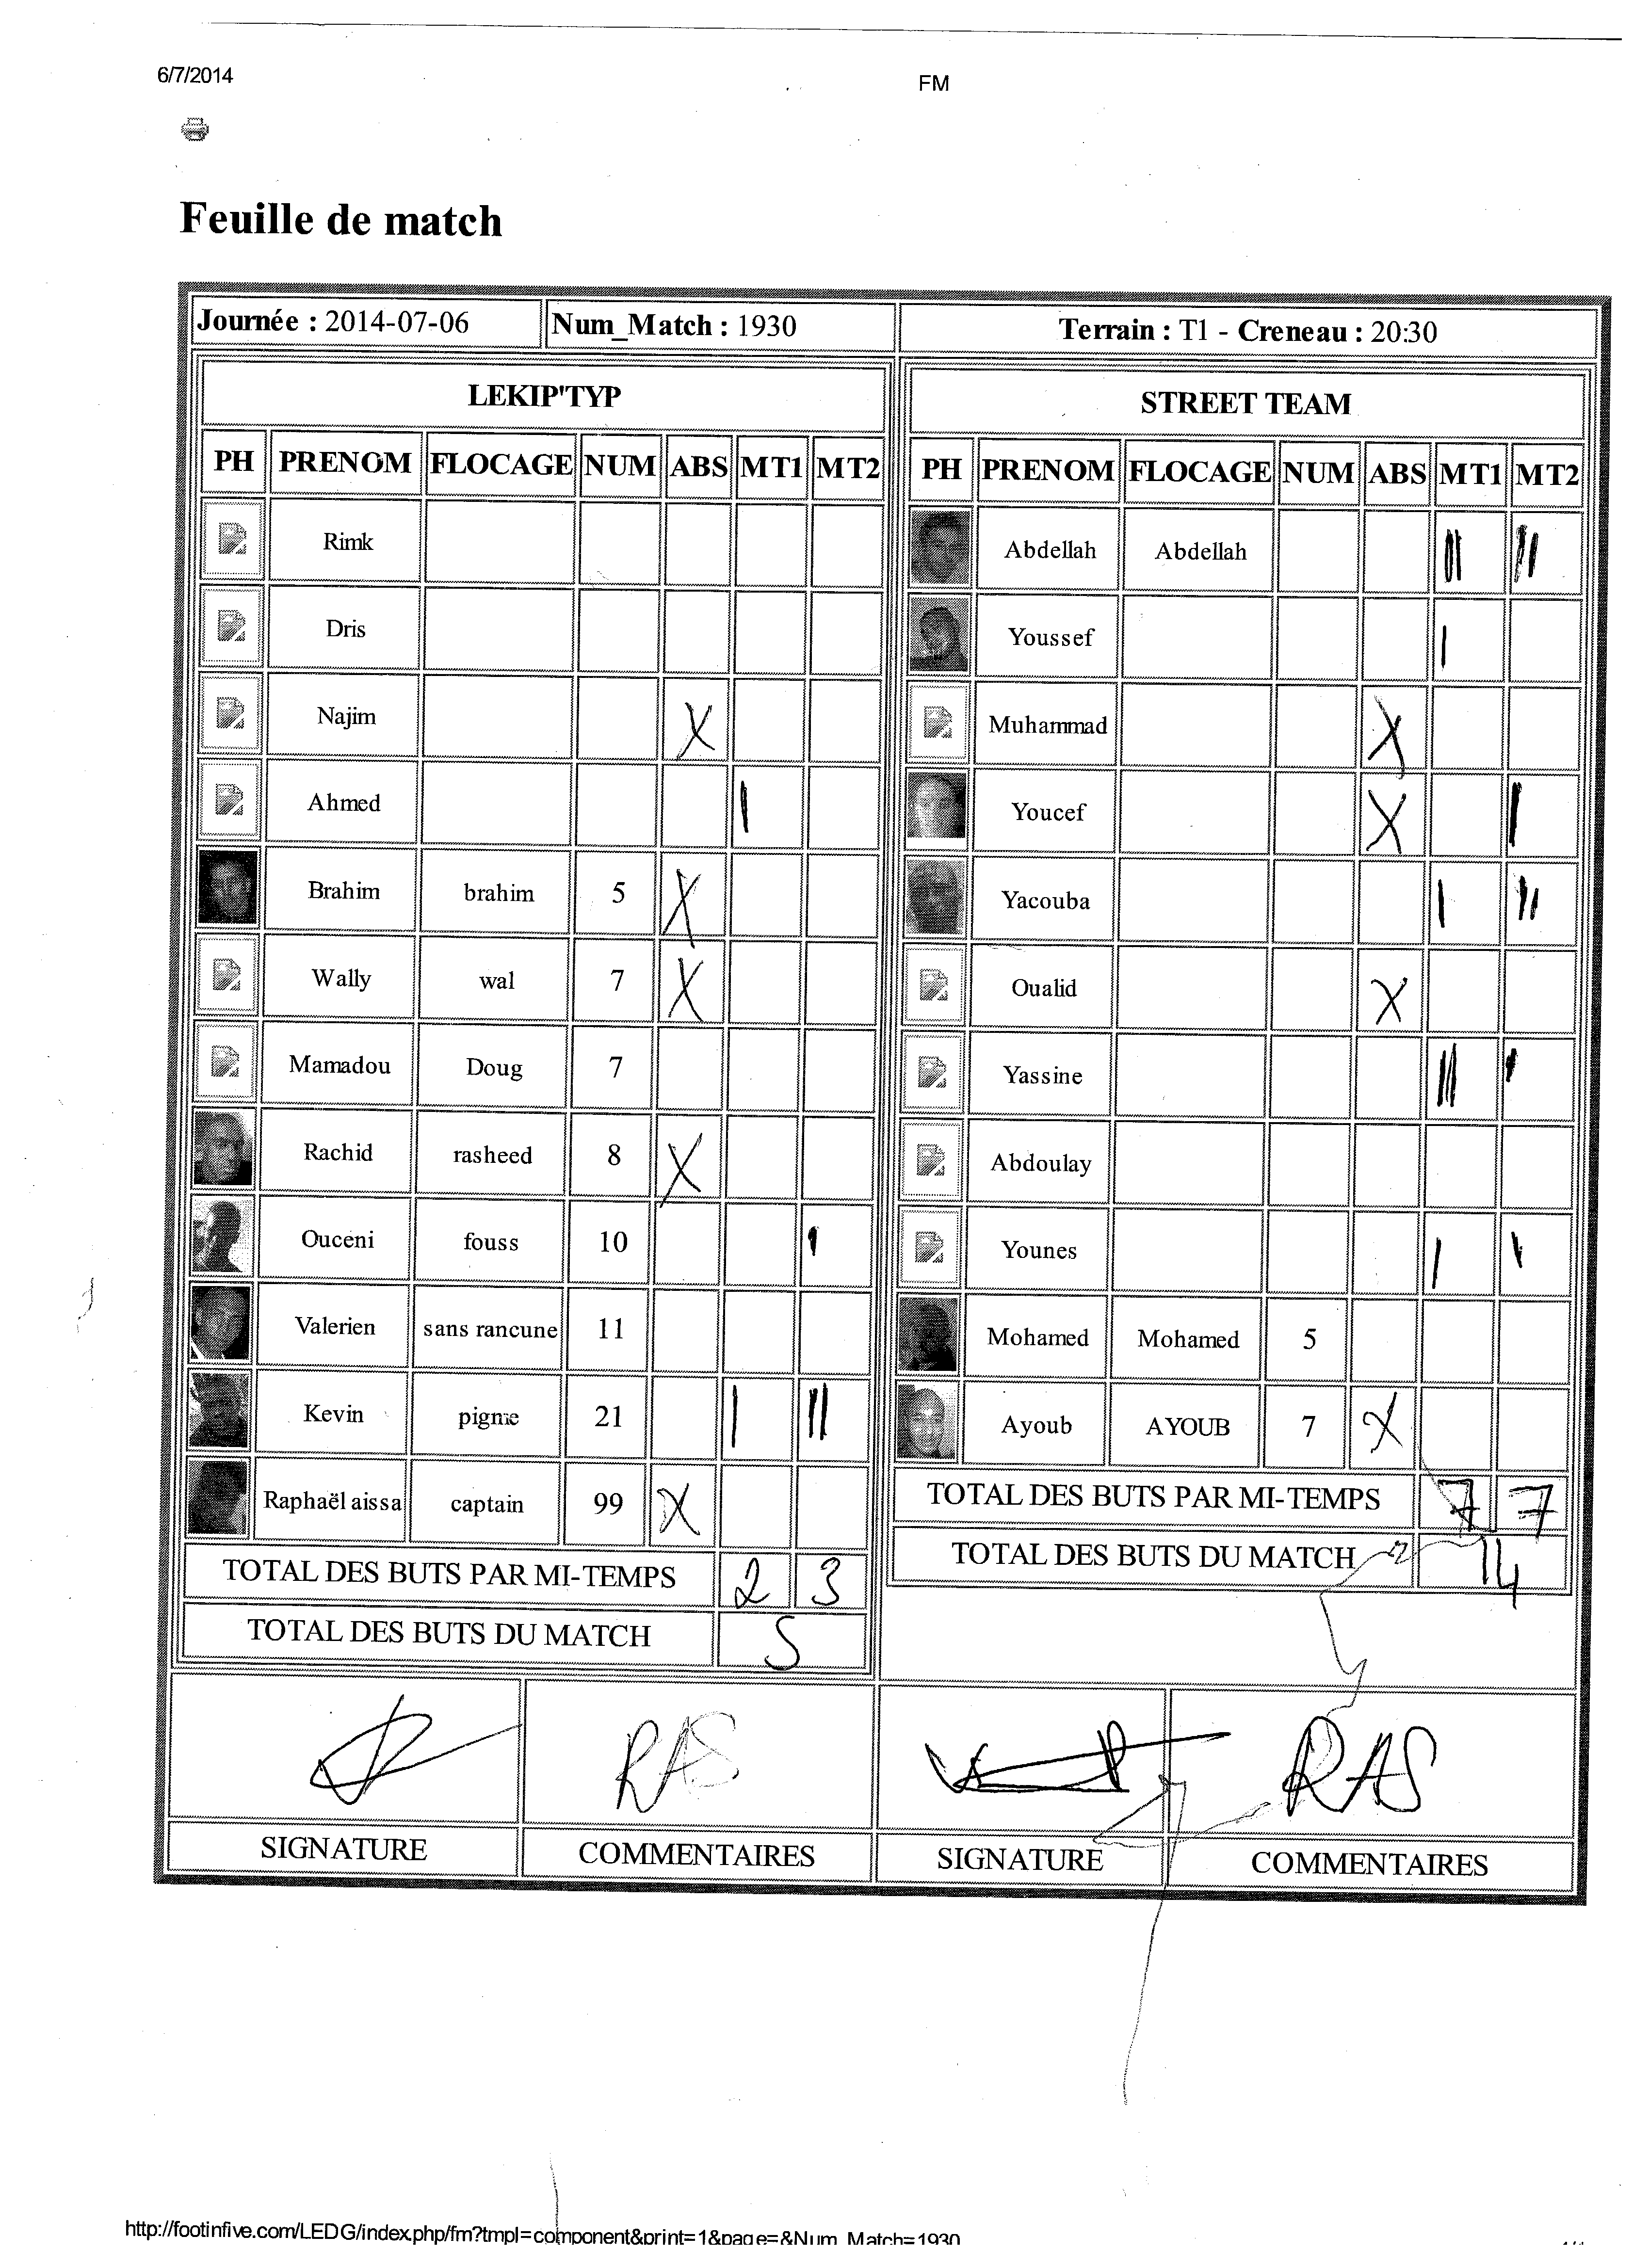 6/7/2014 FM
Feuille de match
Journée : 2014-07-06 Num_Match : 1930 Terrain : T1 - Creneau : 20:30
LEKIP'TYP
PH PRENOM FLOCAGE NUM ABS MT1 MT2
Rimk
Dris
Najim X
Ahmed I
Brahim brahim 5 X
Wally wal 7 X
Mamadou Doug 7
Rachid rasheed 8 X
Ouceni fouss 10 I
Valerien sans rancune 11
Kevin pigme 21 I II
Raphaël aissa captain 99 X
TOTAL DES BUTS PAR MI-TEMPS 2 3
TOTAL DES BUTS DU MATCH 5
RAS
SIGNATURE COMMENTAIRES
STREET TEAM
PH PRENOM FLOCAGE NUM ABS MT1 MT2
Abdellah Abdellah II II
Youssef I
Muhammad X
Youcef X I
Yacouba I II
Oualid X
Yassine II I
Abdoulay
Younes I I
Mohamed Mohamed 5
Ayoub AYOUB 7 X
TOTAL DES BUTS PAR MI-TEMPS 7 7
TOTAL DES BUTS DU MATCH 14
RAS
SIGNATURE COMMENTAIRES
http://footinfive.com/LEDG/index.php/fm?tmpl=component&print=1&page=&Num_Match=1930